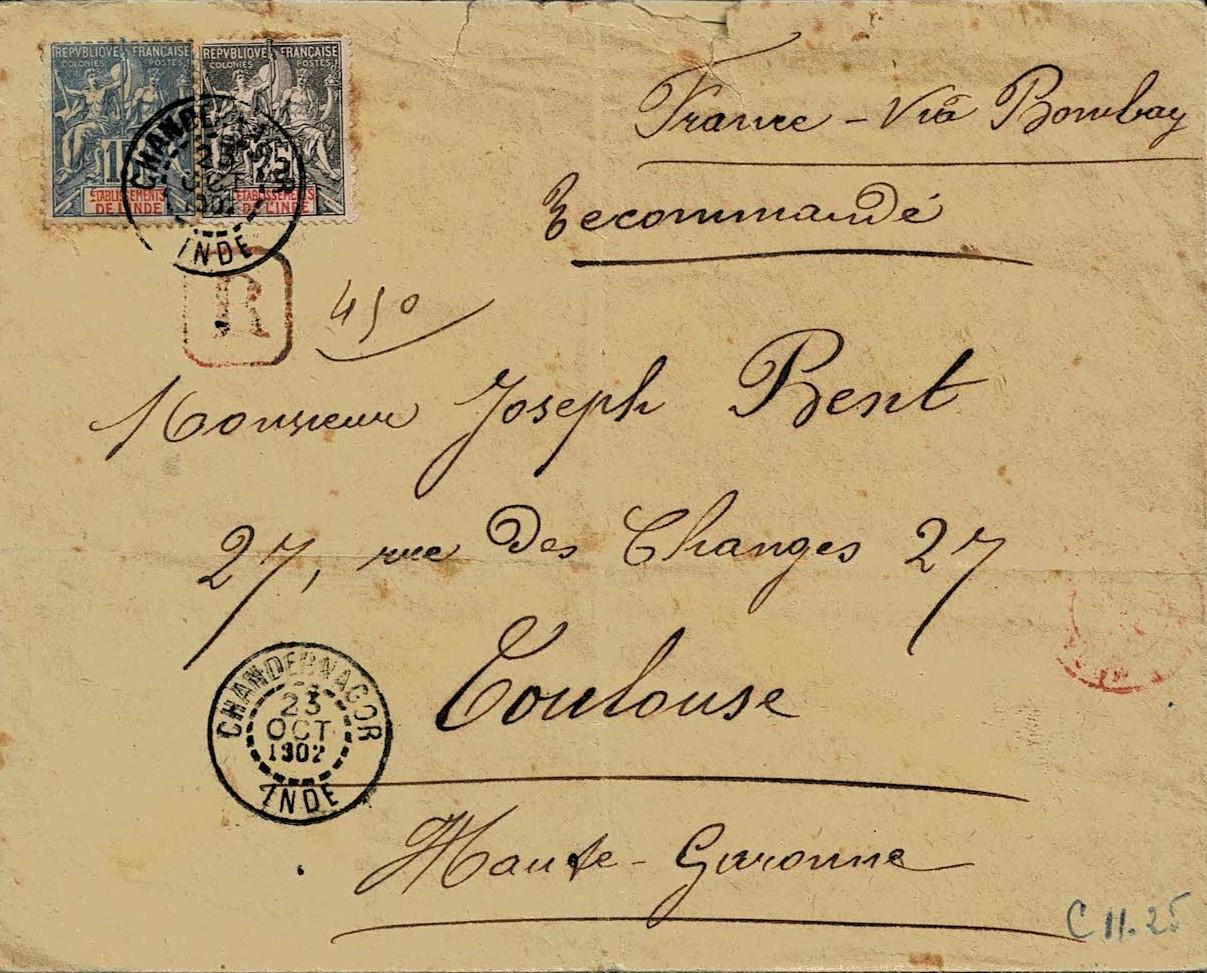 REPVBLIQVE FRANÇAISE
COLONIES POSTES
15
ETABLISSEMENTS
DE L'INDE
REPVBLIQVE FRANÇAISE
COLONIES POSTES
25
ETABLISSEMENTS
DE L'INDE
CHANDERNAGOR
23
OCT
1902
INDE
France - Via Bombay
Recommandé
R
450
Monsieur Joseph Bent
27, rue des Changes 27
Toulouse
CHANDERNAGOR
23
OCT
1902
INDE
Haute-Garonne
C 11.25